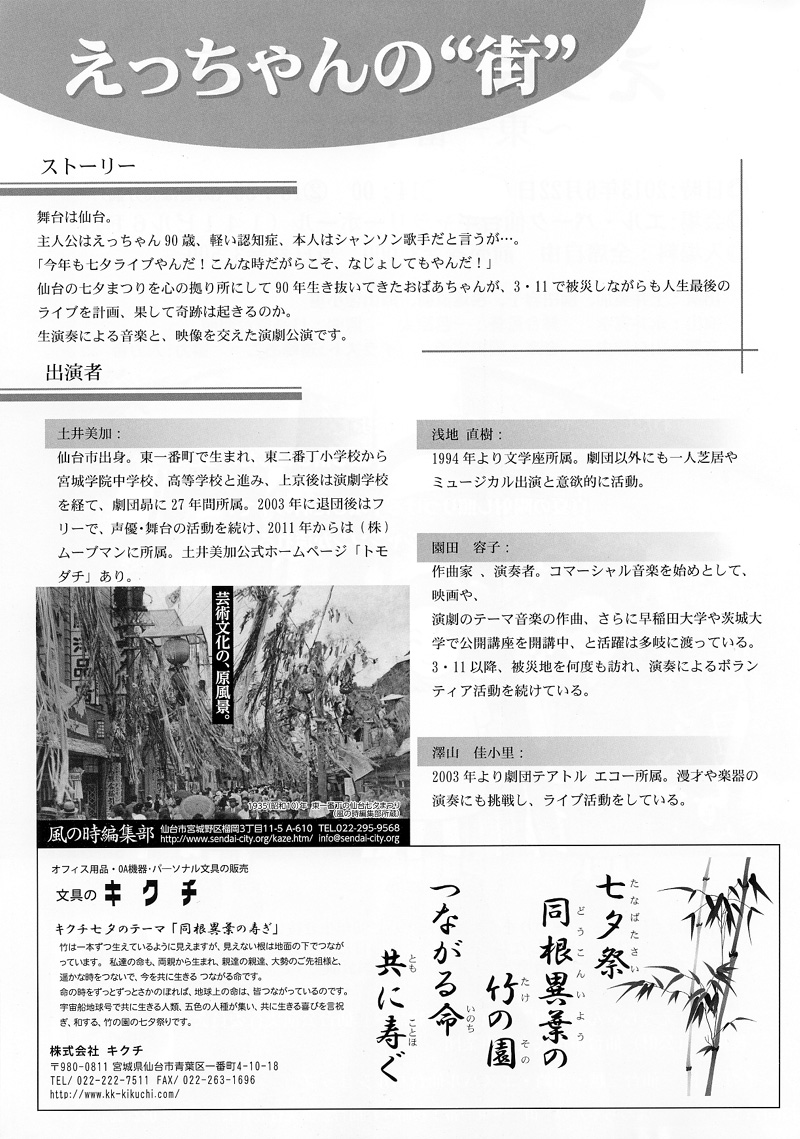 えっちゃんの“街”
ストーリー
舞台は仙台。
主人公はえっちゃん 90 歳、軽い認知症、本人はシャンソン歌手だと言うが…。
「今年も七夕ライブやんだ！こんな時だがらこそ、なじょしてもやんだ！」
仙台の七夕まつりを心の拠り所にして 90 年生き抜いてきたおばあちゃんが、3・11 で被災しながらも人生最後の
ライブを計画、果して奇跡は起きるのか。
生演奏による音楽と、映像を交えた演劇公演です。
出演者
土井美加：
仙台市出身。東一番町で生まれ、東二番丁小学校から
宮城学院中学校、高等学校と進み、上京後は演劇学校
を経て、劇団昴に 27 年間所属。2003 年に退団後はフ
リーで、声優・舞台の活動を続け、2011 年からは（株）
ムーブマンに所属。土井美加公式ホームページ「トモ
ダチ」あり。
浅地 直樹：
1994 年より文学座所属。劇団以外にも一人芝居や
ミュージカル出演と意欲的に活動。
園田　容子：
作曲家 、演奏者。コマーシャル音楽を始めとして、
映画や、
演劇のテーマ音楽の作曲、さらに早稲田大学や茨城大
学で公開講座を開講中、と活躍は多岐に渡っている。
3・11 以降、被災地を何度も訪れ、演奏によるボラン
ティア活動を続けている。
澤山　佳小里：
2003 年より劇団テアトル エコー所属。漫才や楽器の
演奏にも挑戦し、ライブ活動をしている。
芸術文化の、原風景。
1935(昭和10)年 東一番丁の仙台七夕まつり
(風の時編集部所蔵)
風の時編集部
仙台市宮城野区榴岡3丁目11-5 A-610 TEL.022-295-9568
http://www.sendai-city.org/kaze.htm/ info@sendai-city.org
オフィス用品・OA機器・パーソナル文具の販売
文具の キクチ
キクチ七夕のテーマ「同根異葉の寿ぎ」
竹は一本ずつ生えているように見えますが、見えない根は地面の下でつなが
っています。 私達の命も、両親から生まれ、親達の親達、大勢のご先祖様と、
遥かな時をつないで、今を共に生きる つながる命です。
命の時をずっとずっとさかのぼれば、地球上の命は、皆つながっているのです。
宇宙船地球号で共に生きる人類、五色の人種が集い、共に生きる喜びを言祝
ぎ、和する、竹の園の七夕祭りです。
株式会社 キクチ
〒980-0811 宮城県仙台市青葉区一番町4-10-18
TEL/ 022-222-7511 FAX/ 022-263-1696
http://www.kk-kikuchi.com/
七夕祭
たなばたさい
同根異葉の
どうこんいよう
竹の園
たけ その
つながる命
いのち
共に寿ぐ
とも ことほ